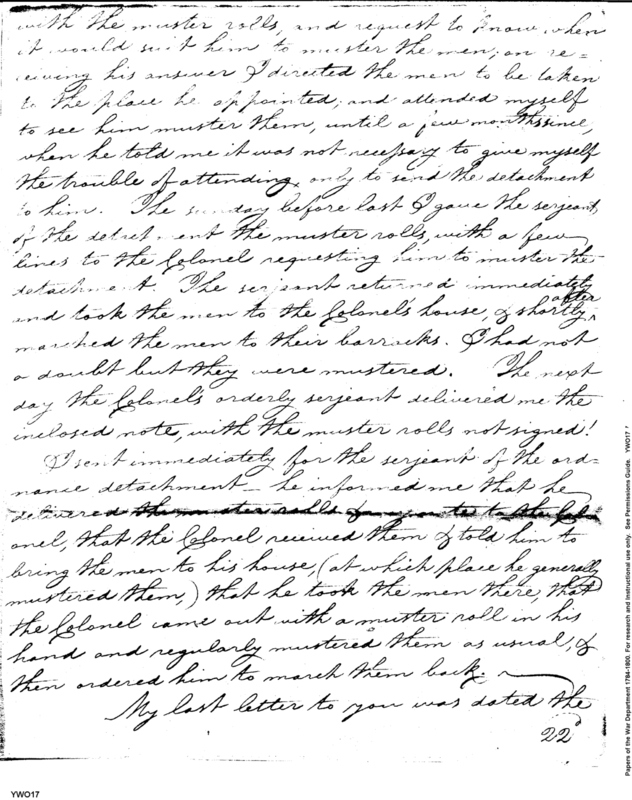 with the muster rolls, and request to know when
it would suit him to muster the men; on re=
ceiving his answer I directed the men to be taken
to the place he appointed, and attended myself
to see him muster them, until a few months since,
when he told me it was not necessary to give myself
the trouble of attending, only to send the detachment
to him. The sunday before last I gave the serjeant,
of the detachment the muster rolls, with a few
lines to the Colonel requesting him to muster the
detachment. The serjeant returned immediately
and took the men to the Colonel's house, & shortly after
marched the men to their barracks. I had not
a doubt but they were mustered. The next
day the Colonel's orderly serjeant delivered me the
inclosed note, with the muster rolls not signed!
I sent immediately for the serjeant of the ord=
nance detachment he informed me that he
delivered the muster rolls & my note to the Col
onel, that the Colonel received them & told him to
bring the men to his house, (at which place he generally
mustered them,) that he took the men there, that
the Colonel came out with a muster roll in his
hand and regularly mustered them as usual, &
then ordered him to march them back.
My last letter to you was dated the
22d
YWO17
Papers of the War Department 1784-1800. For research and instructional use only. See Permissions Guide. YWO17